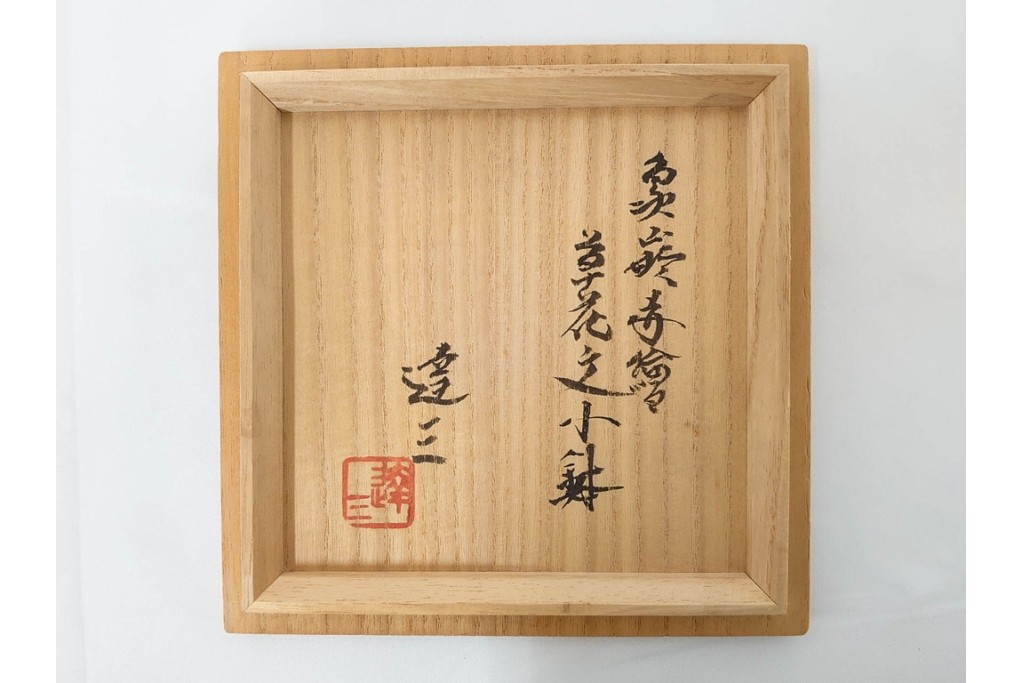 象嵌赤繪
草花文小鉢
達三
達三